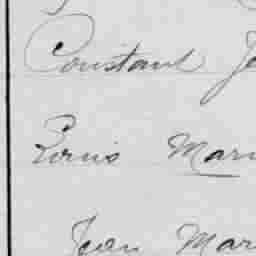 Constant Je
Louis Mari
Jean Mar